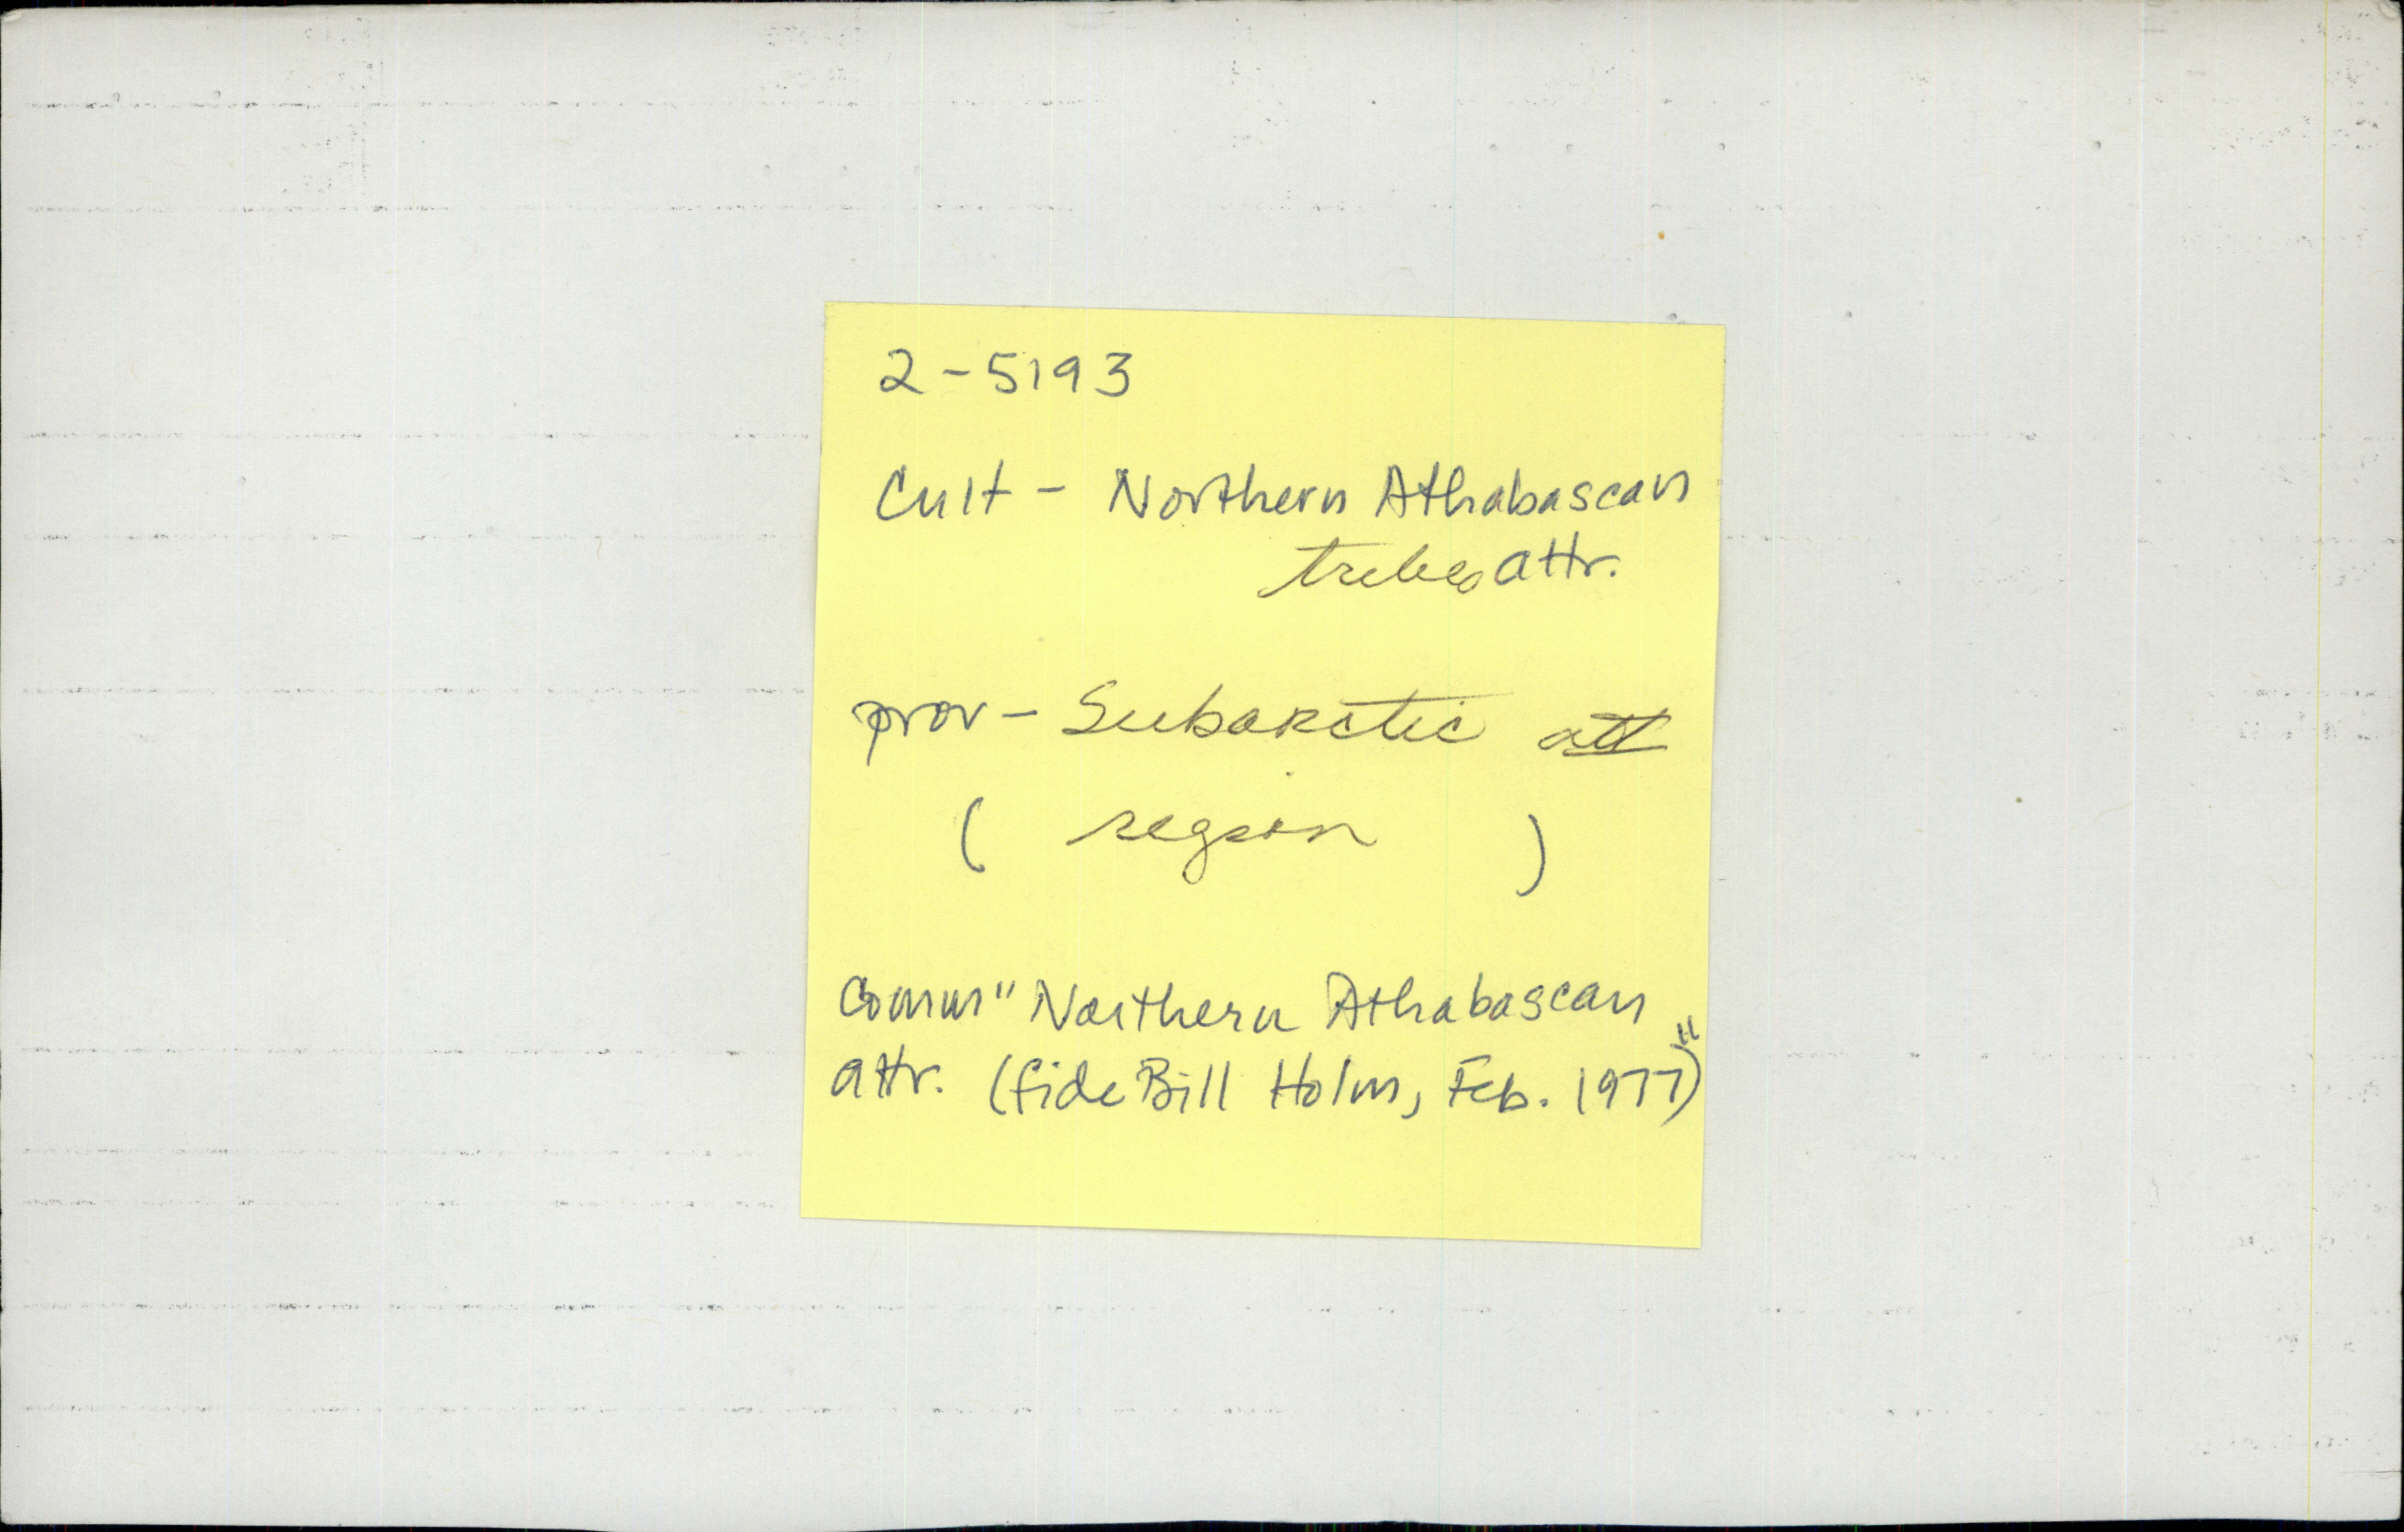 2-5193
Cult - Northern Athabascan
tribes attr.
prov - Subarctic att
( region )
Comm "Northern Athabascan
attr. (fide Bill Holm, Feb. 1977)"